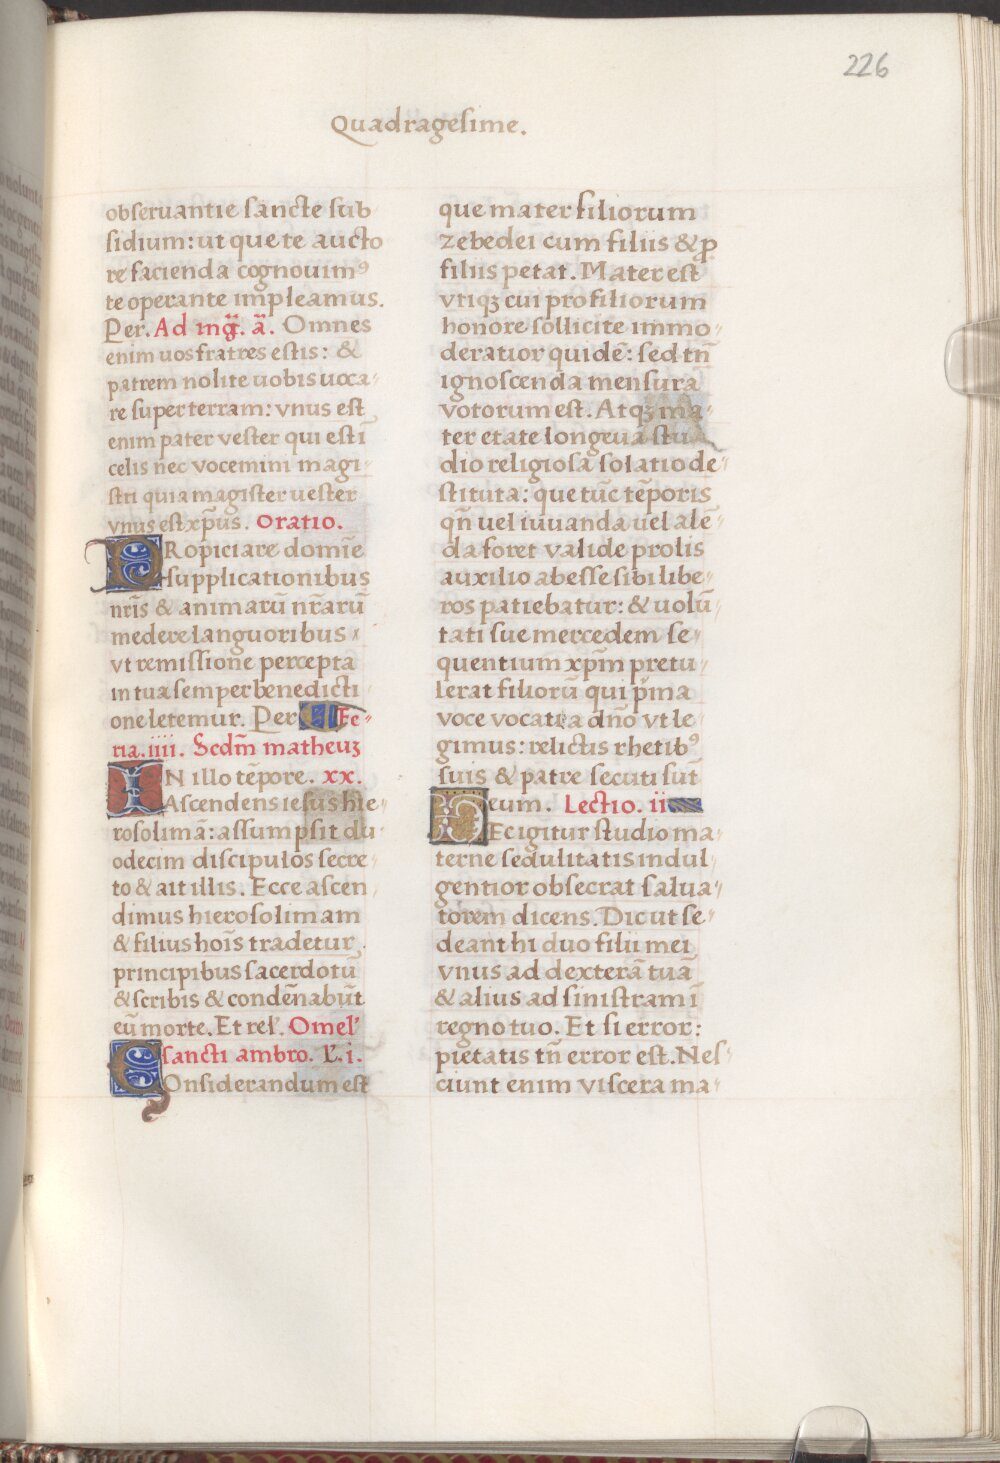 226
Quadragesime.
observantie sancte sub
sidium: ut que te aucto
re facienda cognovimꝰ
te operante impleamus.
Per. Ad mg̃. ã. Omnes
enim uos fratres estis: &
patrem nolite uobis uoca-
re super terram: vnus est
enim pater vester qui est ĩ
celis nec vocemini magi-
stri quia magister uester
vnus est xp̃us. Oratio.
PRopiciare domĩe
supplicationibus
nr̃is & animarũ nr̃arũ
medere languoribus
vt remissione percepta
in tua semper benedicti
one letemur. Per Fe-
ria. iiii. Scdm̃ matheuʒ
IN illo tẽpore. xx.
Ascendens iesus hie-
rosolimã: assumpsit du-
odecim discipulos secre-
to & ait illis. Ecce ascen-
dimus hierosolimam
& filius hoĩs tradetur
principibus sacerdotũ
& scribis & condẽnabũt
eũ morte. Et rel'. Omel'
sancti ambro. L'. i.
COnsiderandum est
que mater filiorum
zebedei cum filiis & ꝓ
filiis petat. Mater est
vtiqʒ cui pro filiorum
honore sollicite immo-
deratior quidẽ: sed tñ
ignoscenda mensura
votorum est. Atqʒ ma-
ter etate longeua stu-
dio religiosa solatio de-
stituta: que tũc tẽporis
qñ uel iuuanda uel alẽ-
da foret valide prolis
auxilio abesse sibi libe-
ros patiebatur: & uolũ-
tati sue mercedem se-
quentium xp̃m pretu-
lerat filiorũ qui p̃ma
voce vocati a dño vt le-
gimus: relictis rhetibꝰ
suis & patre secuti sũt
eum. Lectio. ii
HEc igitur studio ma-
terne sedulitatis indul-
gentior obsecrat salua-
torem dicens. Dic ut se-
deant hi duo filii mei
vnus ad dexterã tuã
& alius ad sinistram ĩ
regno tuo. Et si error:
pietatis tñ error est. Nes-
ciunt enim viscera ma-